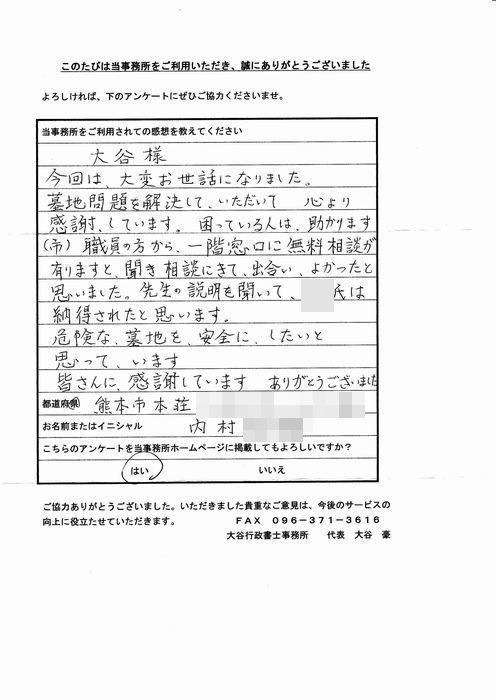 このたびは当事務所をご利用いただき、誠にありがとうございました
よろしければ、下のアンケートにぜひご協力くださいませ。
当事務所をご利用されての感想を教えてください
大谷様
今回は、大変お世話になりました。
墓地問題を解決して、いただいて 心より
感謝、しています。困っている人は、助かります
(市)職員の方から、一階窓口に無料相談が
有りますと、聞き相談にきて、出合い、よかったと
思いました。先生の説明を聞いて、 氏は
納得されたと思います。
危険な、墓地を、安全に、したいと
思って、います
皆さんに、感謝しています ありがとうございました
都道府県 熊本市本荘
お名前またはイニシャル 内村
こちらのアンケートを当事務所ホームページに掲載してもよろしいですか?
はい いいえ
ご協力ありがとうございました。いただきました貴重なご意見は、今後のサービスの
向上に役立たせていただきます。 FAX 096-371-3616
大谷行政書士事務所 代表 大谷 豪